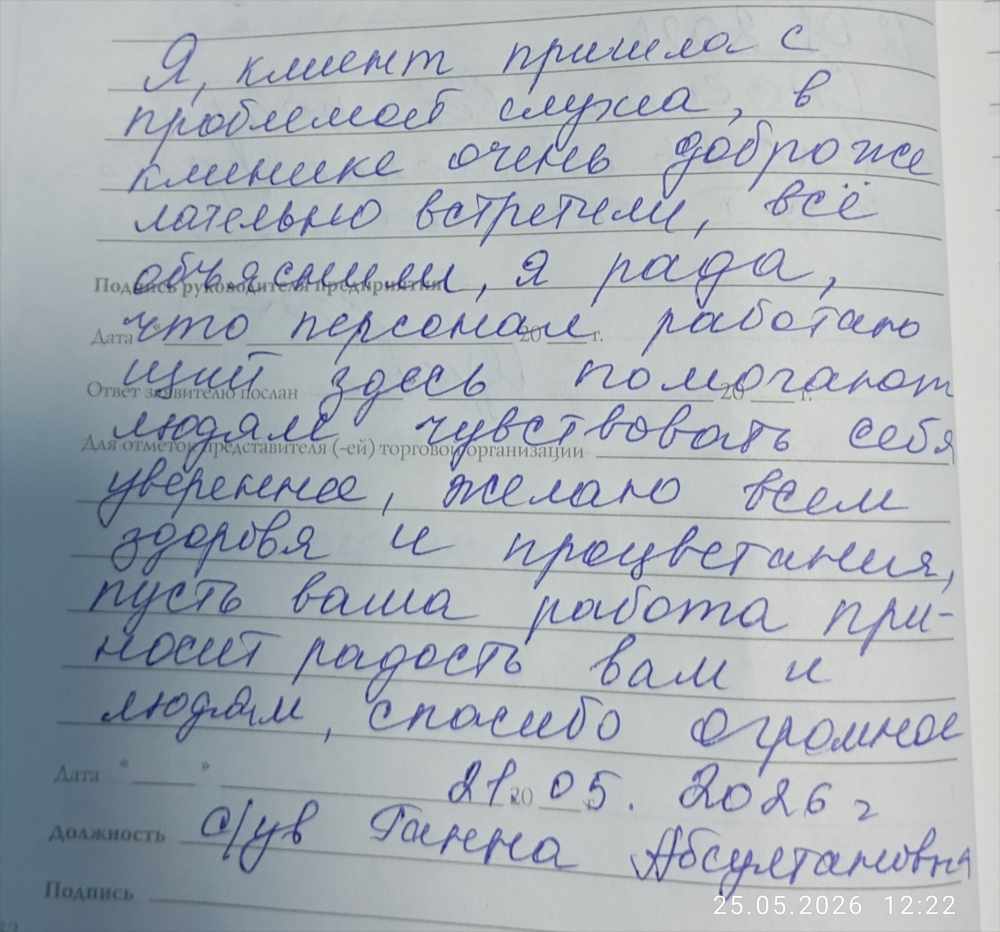 Я, клиент пришла с
проблемой слуха, в
клинике очень доброже
лательно встретили, всё
объяснили, я рада,
Подпись руководителя предприятия
что персонал работаю
Дата 20 г.
щий здесь помогают
Ответ заявителю послан 20 г.
людям чувствовать себя
Для отметок представителя (-ей) торговой организации
увереннее, желаю всем
здоровя и процветания,
пусть ваша работа при-
носит радость вам и
людям, спасибо огромное
Дата " " 21 20 05. 2026 г
Должность с/ув Ганна Абсултановна
Подпись
25.05.2026 12:22